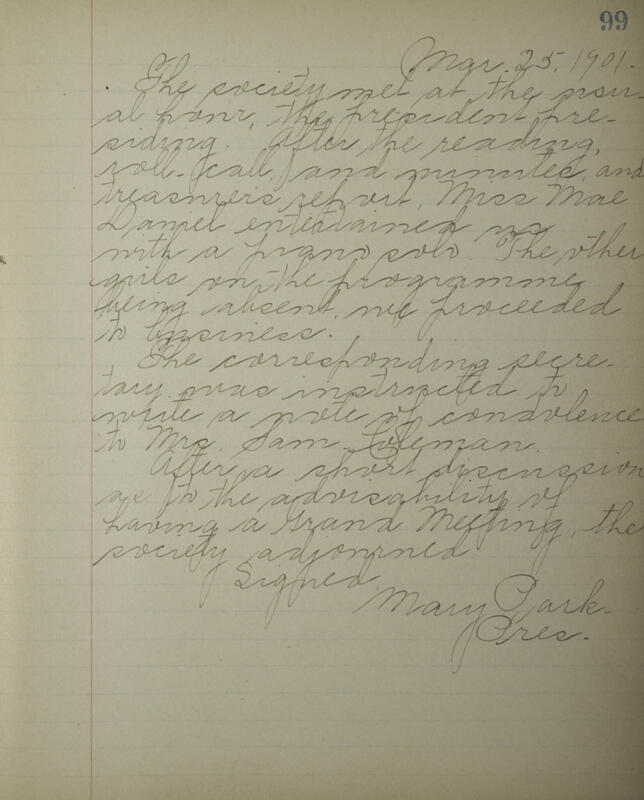 99
Mar. 25. 1901.
The society met at the usu-
al hour, the president pre-
siding. After the reading,
roll-call, and minutes, and
treasurer's report, Miss Mae
Daniel entertained us
with a piano solo. The other
girls on the programme
being absent, we proceeded
to business.
The corresponding secre-
tary was instructed to
write a note of condolence
to Mrs. Sam. Coleman.
After a short discussion
as to the advisability of
having a Grand Meeting, the
society adjourned
Signed
Mary Park-
Pres-